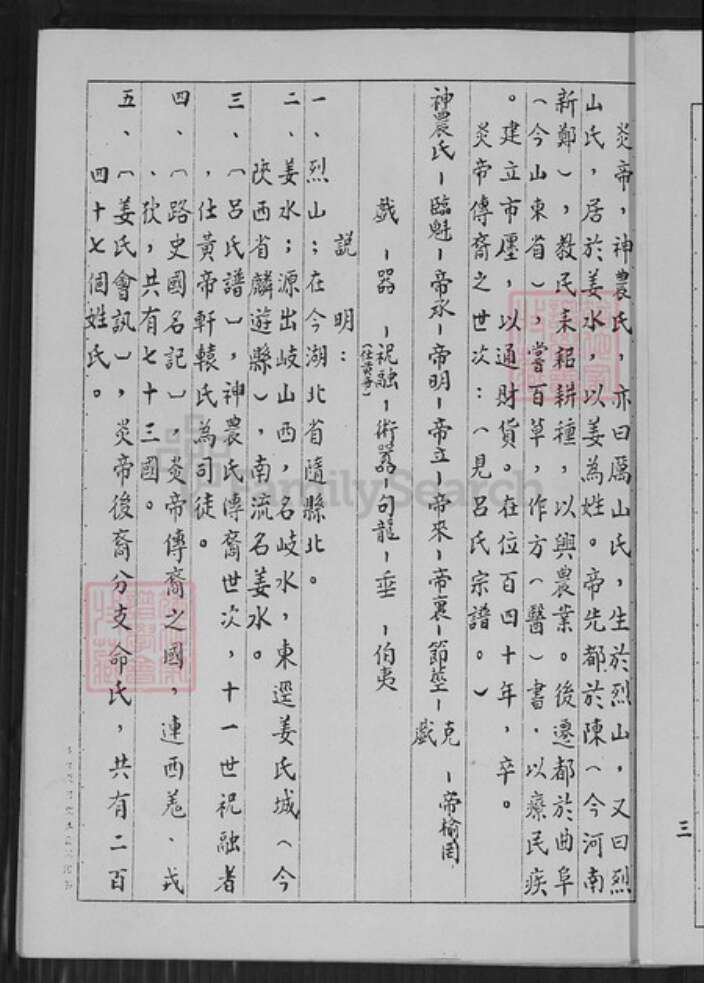 炎帝，神農氏，亦曰厲山氏，生於烈山，又曰烈
山氏，居於姜水，以姜為姓。帝先都於陳（今河南
新鄭），教民耒耜耕種，以興農業。後遷都於曲阜
（今山東省），嘗百草，作方（醫）書．以療民疾
。建立市廛，以通財貨。在位百四十年，卒。
炎帝傳裔之世次：（見呂氏宗譜。）
神農氏－臨魁－帝承－帝明－帝立－帝來－帝裏－節莖－克 戲－帝榆罔
戲－器－祝融（仕黃帝）－術嚣－句龍－垂－伯夷
說明：
一、烈山；在今湖北省隨縣北。
二、姜水；源出岐山西，名岐水，東逕姜氏城（今
陝西省麟遊縣），南流名姜水。
三、（呂氏譜），神農氏傳裔世次，十一世祝融者
，仕黃帝軒轅氏為司徒。
四、（路史國名記），炎帝傳裔之國，連西羗、戎
、狄，共有七十三國。
五、（姜氏會訊），炎帝後裔分支命氏，共有二百
四十七個姓氏。
三
FamilySearch